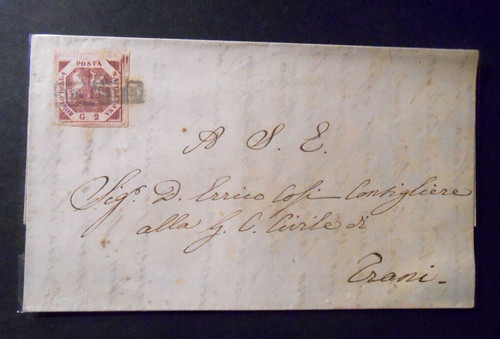 POSTA
NAPOLETANA
BOLLO DELLA
G 2
A S. E.
Sig.r D. Errico Cosi Consigliere
alla G. C. Civile di
Trani.